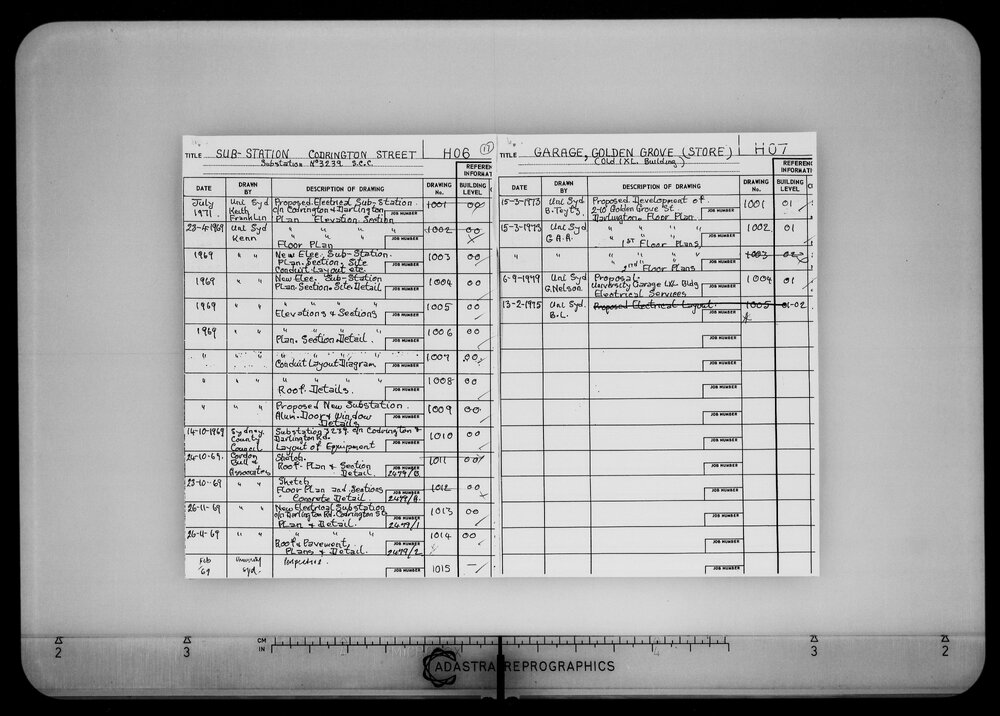 TITLE SUB-STATION CODRINGTON STREET H06 17
Substation Nº3239 S.C.C.
REFEREN
INFORMAT
DATE DRAWN BY DESCRIPTION OF DRAWING DRAWING No. BUILDING LEVEL
July 1971 Uni Syd Keith Franklin Proposed Electrical Sub-Station c/n Codrington & Darlington Plan Elevation Section JOB NUMBER 1001 00
23-4-1969 Uni Syd Kenn " " " Floor Plan JOB NUMBER 1002 00
1969 " " New Elec. Sub-Station Plan. Section. Site Conduit Layout etc. JOB NUMBER 1003 00
1969 " " New Elec. Sub-Station Plan. Section. Site. Detail JOB NUMBER 1004 00
1969 " " " " " " Elevations & Sections JOB NUMBER 1005 00
1969 " " " " " " Plan. Section. Detail. JOB NUMBER 1006 00
" " " " " " Conduit Layout Diagram JOB NUMBER 1007 00
" " " " " " " Roof. Details. JOB NUMBER 1008 00
" " " Proposed New Substation. Alum. Door & Window Details JOB NUMBER 1009 00
14-10-1969 Sydney County Council Substation 3239 c/n Codrington & Darlington Rd. Layout of Equipment JOB NUMBER 1010 00
24-10-69. Gordon Bull & Associates Sketch. Roof. Plan & Section Detail. JOB NUMBER 2479/B 1011 00
23-10-69 " " Sketch Floor Plan and Sections Concrete Detail. JOB NUMBER 2479/A 1012 00
26-11-69 " " New Electrical Substation c/n Darlington Rd. Codrington St. Plan & Detail. JOB NUMBER 2479/1 1013 00
26-11-69 " " " " " Roof & Pavement, Plans & Detail. JOB NUMBER 2479/2 1014 00
Feb '69 University Syd. JOB NUMBER 1015 —
TITLE GARAGE, GOLDEN GROVE (STORE) H07
(Old I.X.L. Building)
REFEREN
INFORMATI
DATE DRAWN BY DESCRIPTION OF DRAWING DRAWING No. BUILDING LEVEL
15-3-1973 Uni Syd B. Toyts. Proposed Development of 2-10 Golden Grove St Darlington. Floor Plan. JOB NUMBER 1001 01
15-3-1973 Uni Syd G.A.A. " " " " 1ST Floor Plans, JOB NUMBER 1002 01
" " " " " " 2nd Floor Plans JOB NUMBER 1003 02
6-9-1979 Uni Syd G. Nelson. Proposal. University Garage IXL Bldg Electrical Services JOB NUMBER 1004 01
13-2-1975 Uni Syd. B.L. Proposed Electrical Layout. JOB NUMBER 1005 01-02
*
JOB NUMBER
JOB NUMBER
JOB NUMBER
JOB NUMBER
JOB NUMBER
JOB NUMBER
JOB NUMBER
JOB NUMBER
JOB NUMBER
JOB NUMBER
CM
IN
2 3 3 2
ADASTRA REPROGRAPHICS